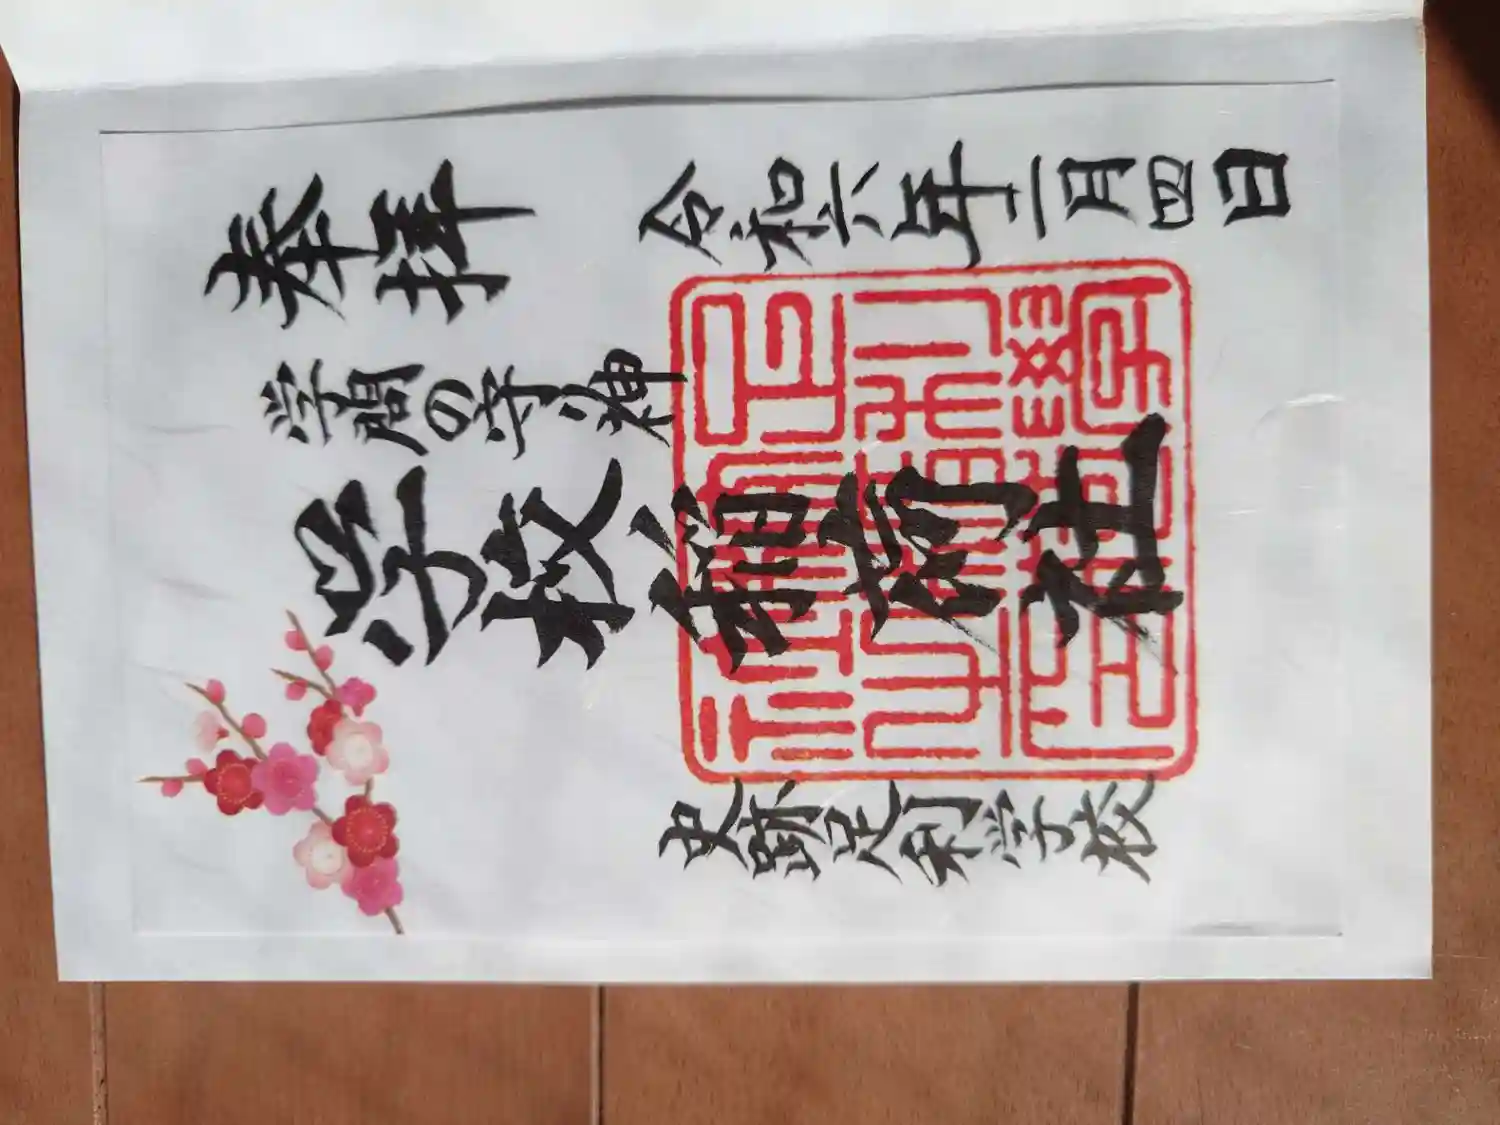 奉拝
令和六年二月四日
学問の守り神
学校稲荷社
史跡足利学校